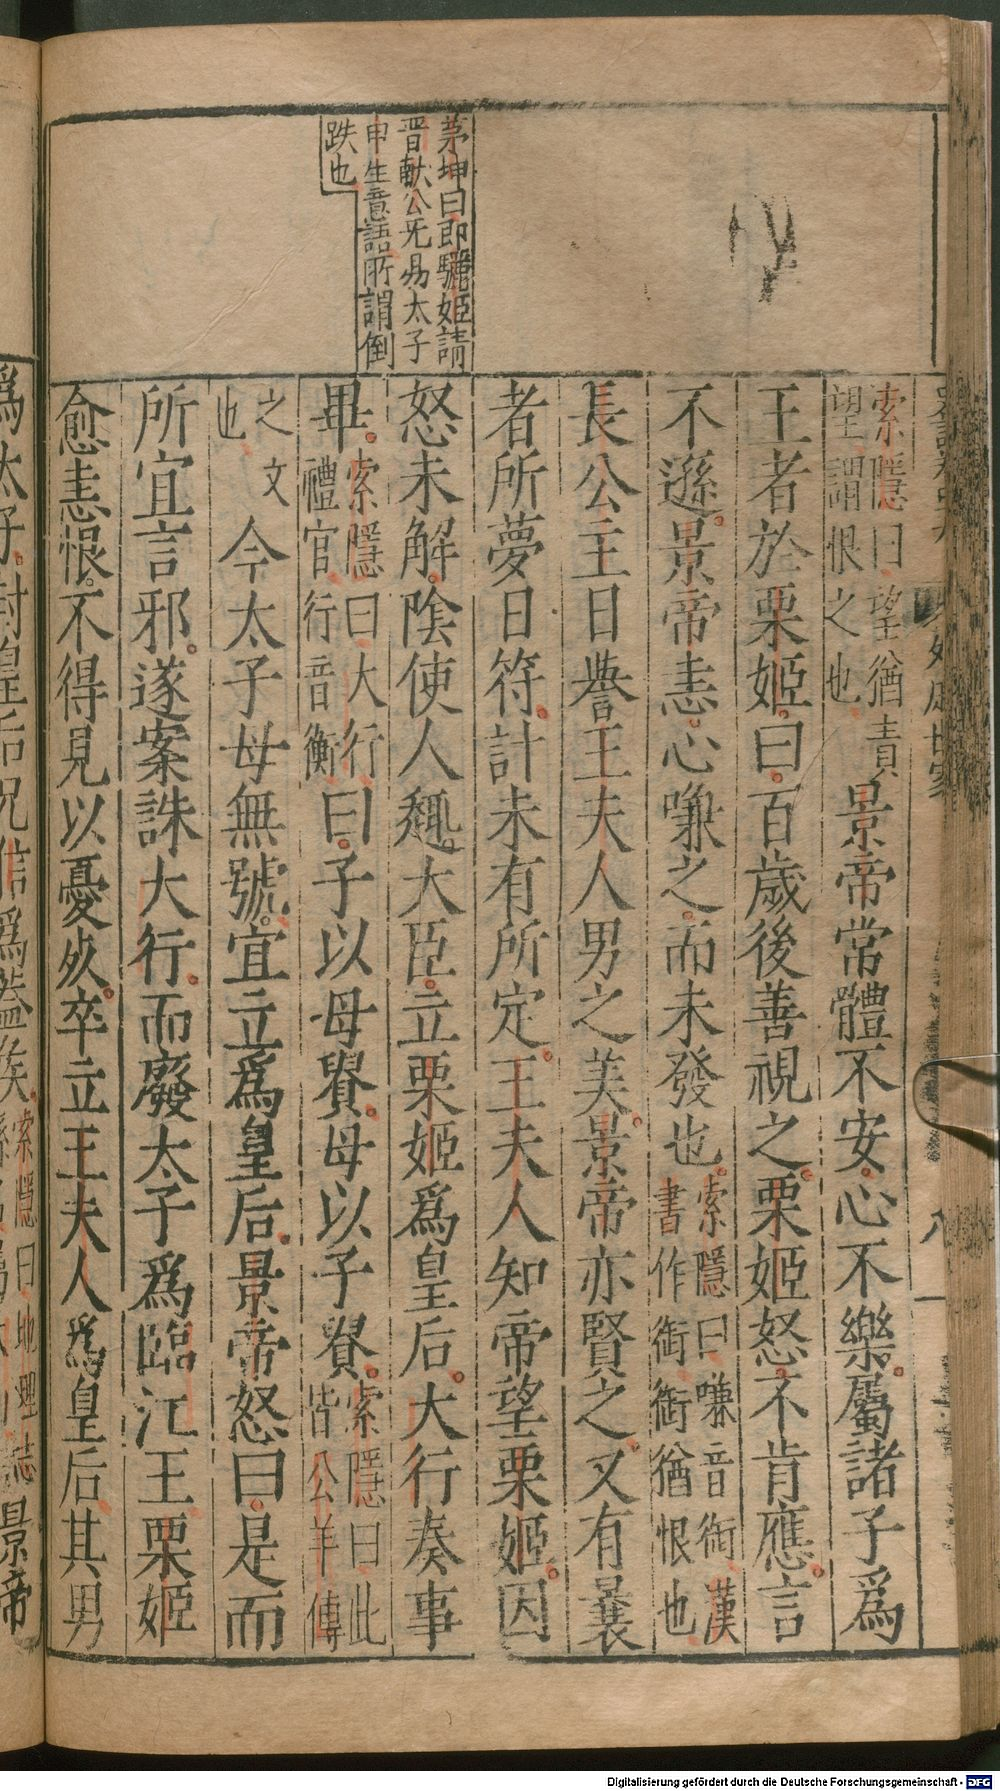 茅坤曰即驪姬請
晋獻公旡易太子
申生意語所謂倒
跌也
索隱曰望猶責
望謂恨之也
景帝常體不安心不樂屬諸子為
王者於栗姬曰百歲後善視之栗姬怒不肯應言
不遜景帝恚心嗛之而未發也
索隱曰嗛音銜漢
書作銜銜猶恨也
長公主日譽王夫人男之美景帝亦賢之又有曩
者所夢日符計未有所定王夫人知帝望栗姬因
怒未解陰使人趣大臣立栗姬為皇后大行奏事
畢
索隱曰大行
禮官行音衡
曰子以母貴母以子貴
索隱曰此
皆公羊傳
之文
也
今太子母無號宜立為皇后景帝怒曰是而
所宜言邪遂案誅大行而廢太子為臨江王栗姬
愈恚恨不得見以憂死卒立王夫人為皇后其男
為太子封皇后兄信為蓋侯
索隱曰地理志
景帝
Digitalisierung gefördert durch die Deutsche Forschungsgemeinschaft - DFG